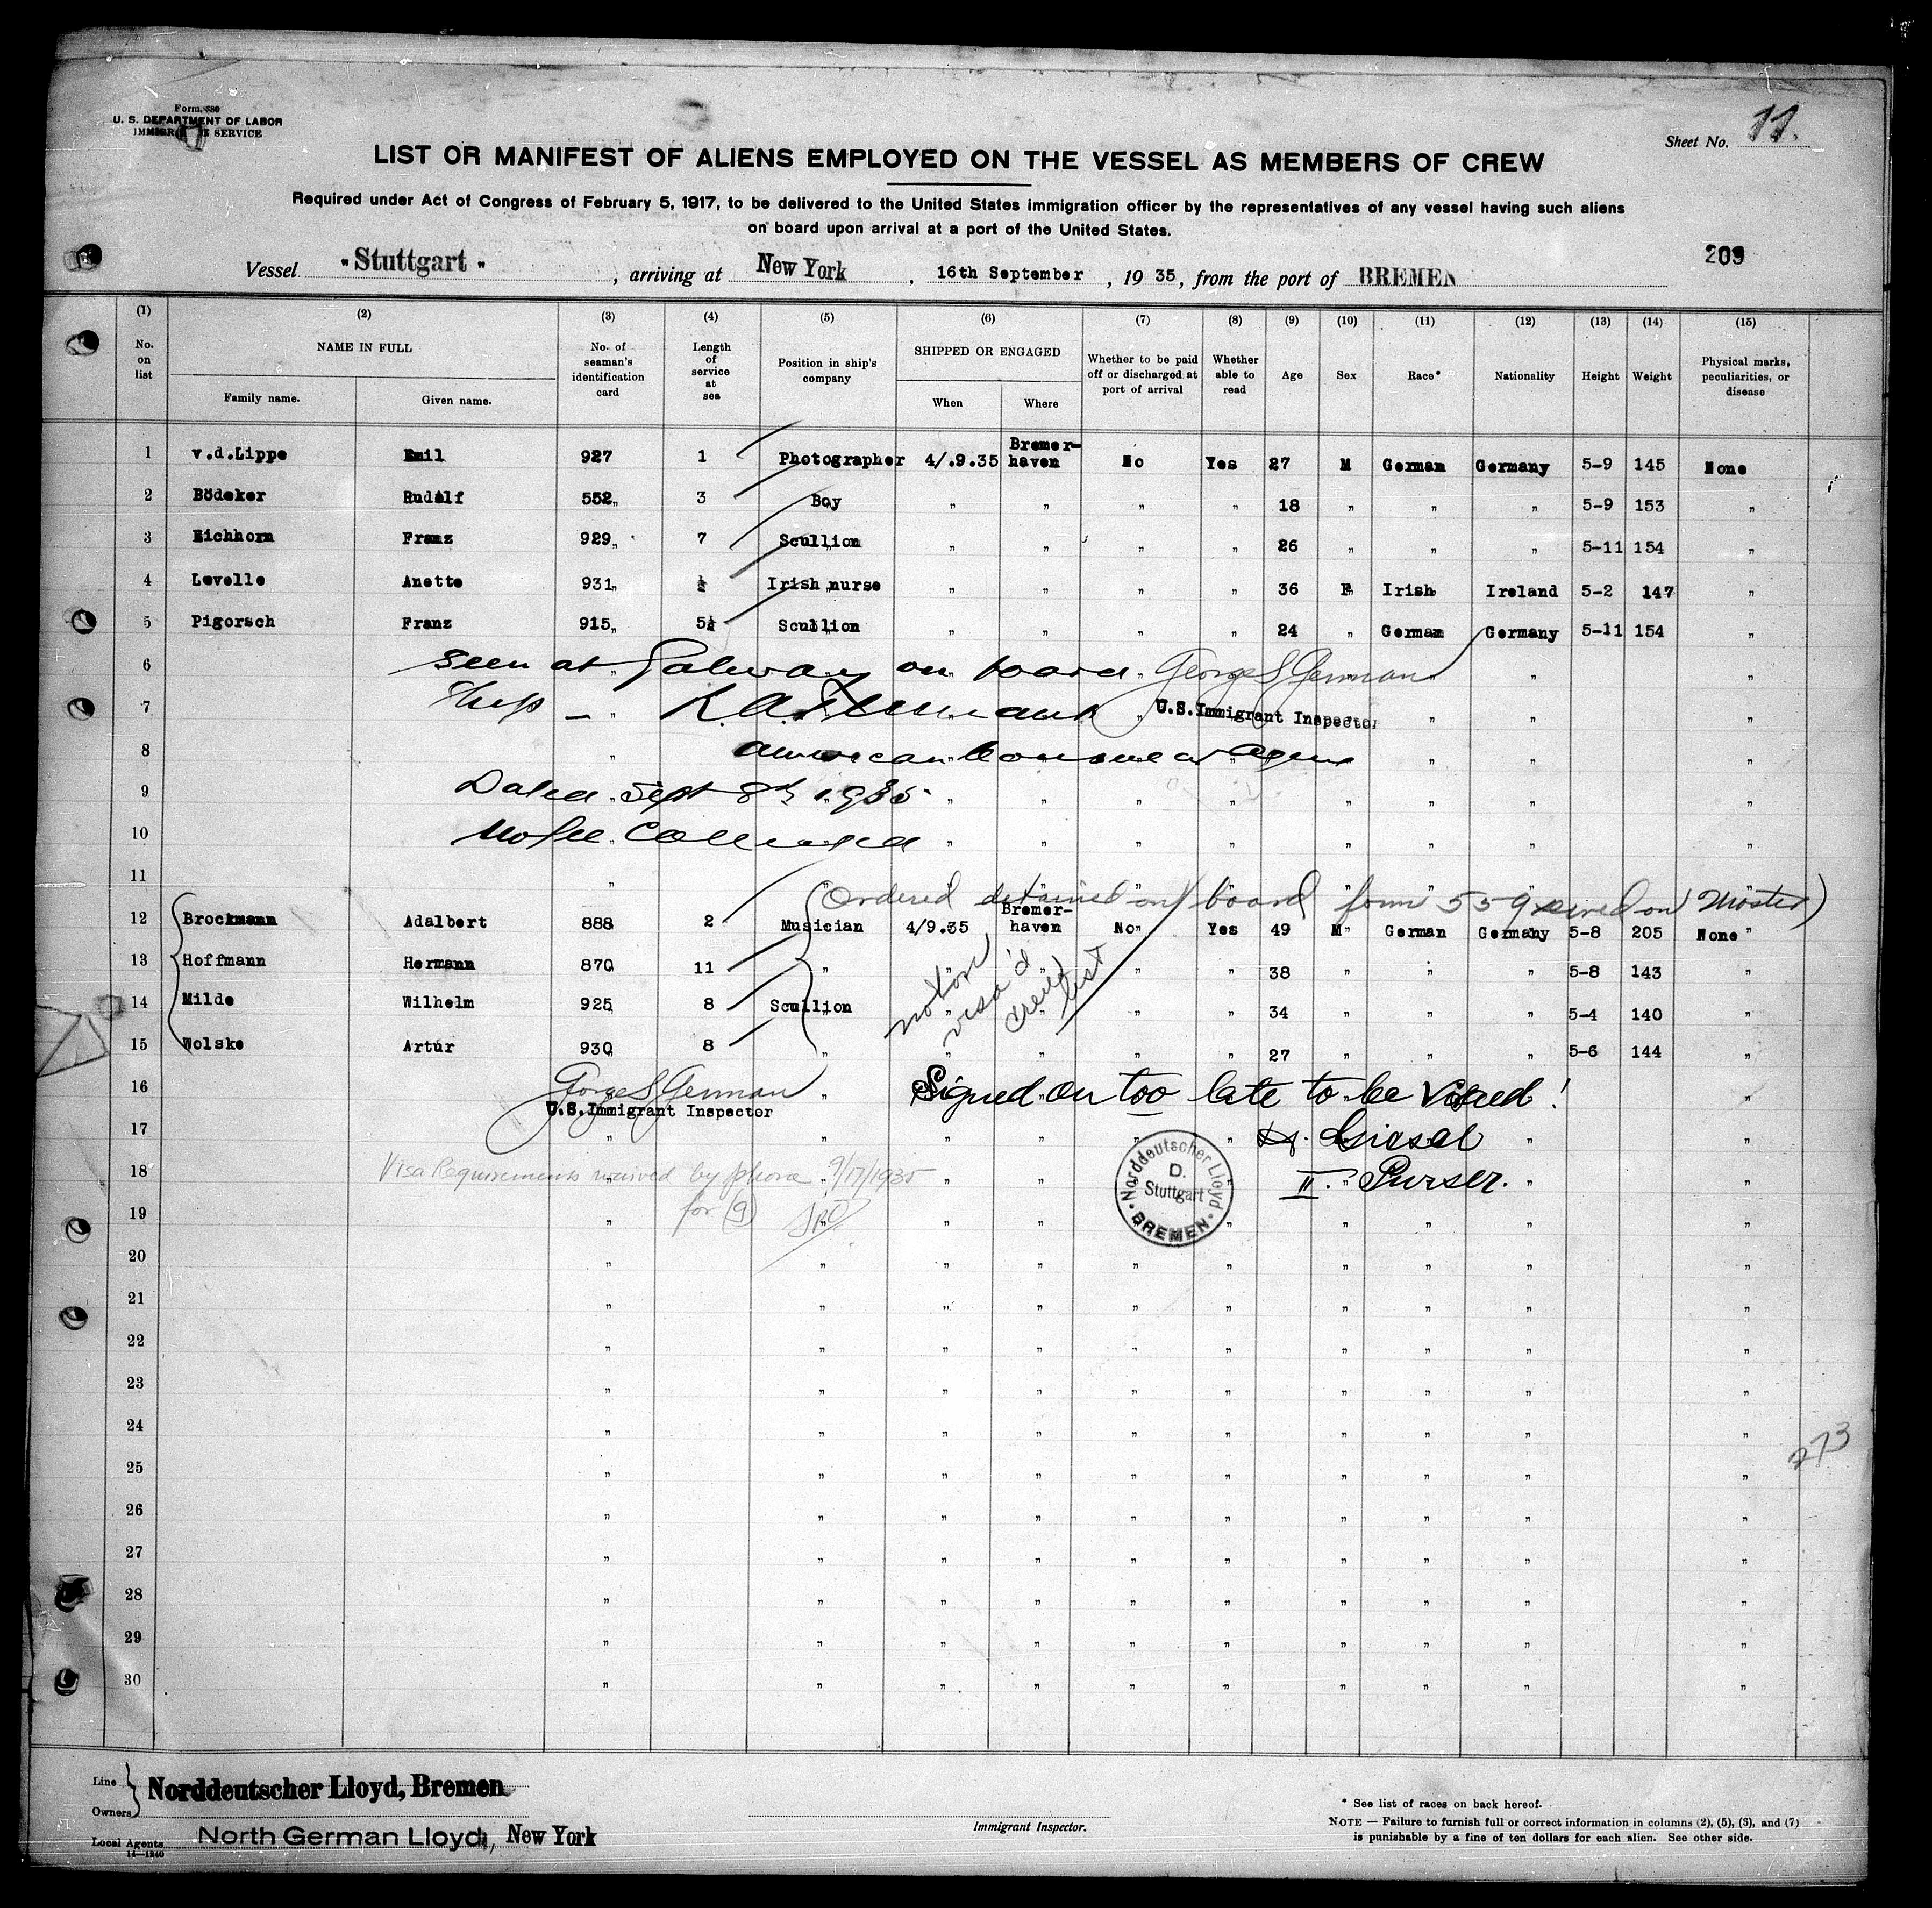 Form 680
U. S. DEPARTMENT OF LABOR
IMMIGRATION SERVICE
Sheet No. 11.
LIST OR MANIFEST OF ALIENS EMPLOYED ON THE VESSEL AS MEMBERS OF CREW
Required under Act of Congress of February 5, 1917, to be delivered to the United States immigration officer by the representatives of any vessel having such aliens
on board upon arrival at a port of the United States.
209
Vessel "Stuttgart", arriving at New York, 16th September, 19 35, from the port of BREMEN
(1) (2) (3) (4) (5) (6) (7) (8) (9) (10) (11) (12) (13) (14) (15)
No. on list NAME IN FULL Family name. Given name. No. of seaman's identification card Length of service at sea Position in ship's company SHIPPED OR ENGAGED When Where Whether to be paid off or discharged at port of arrival Whether able to read Age Sex Race* Nationality Height Weight Physical marks, peculiarities, or disease
1 v.d.Lippe Emil 927 1 Photographer 4/.9.35 Bremer-haven No Yes 27 M German Germany 5-9 145 None
2 Bödeker Rudolf 552 3 Boy " " " " 18 " " " 5-9 153 "
3 Eichhorn Franz 929 7 Scullion " " " " 26 " " " 5-11 154 "
4 Levelle Anette 931 Irish nurse " " " " 36 F Irish Ireland 5-2 147 "
5 Pigorsch Franz 915 5½ Scullion " " " " 24 " German Germany 5-11 154 "
6 Seen at Galway on board George S German
7 Ship - U.S.Immigrant Inspector
8 American Consular Agent
9 Dated Sept 8th 1935
10 No fee
11 (Ordered detained on board form 559 served on Master)
12 Brockmann Adalbert 888 2 Musician 4/9.35 Bremer-haven No Yes 49 M German Germany 5-8 205 None
13 Hoffmann Hermann 870 11 " " " " " 38 " " " 5-8 143 "
14 Milde Wilhelm 925 8 Scullion " " " " 34 " " " 5-4 140 "
15 Wolske Artur 930 8 " " " " " 27 " " " 5-6 144 "
not on visa'd crew list
16 George S German Signed on too late to be visaed!
U.S.Immigrant Inspector
17
18 Visa Requirements waived by phone 9/17/1935 II. Purser.
19 for (9)
Norddeutscher Lloyd
D. Stuttgart
BREMEN
20
21
22
23
24
25
273
26
27
28
29
30
Line Owners Norddeutscher Lloyd, Bremen
Local Agents North German Lloyd, New York
14—1240
Immigrant Inspector.
* See list of races on back hereof.
NOTE — Failure to furnish full or correct information in columns (2), (5), (3), and (7)
is punishable by a fine of ten dollars for each alien. See other side.